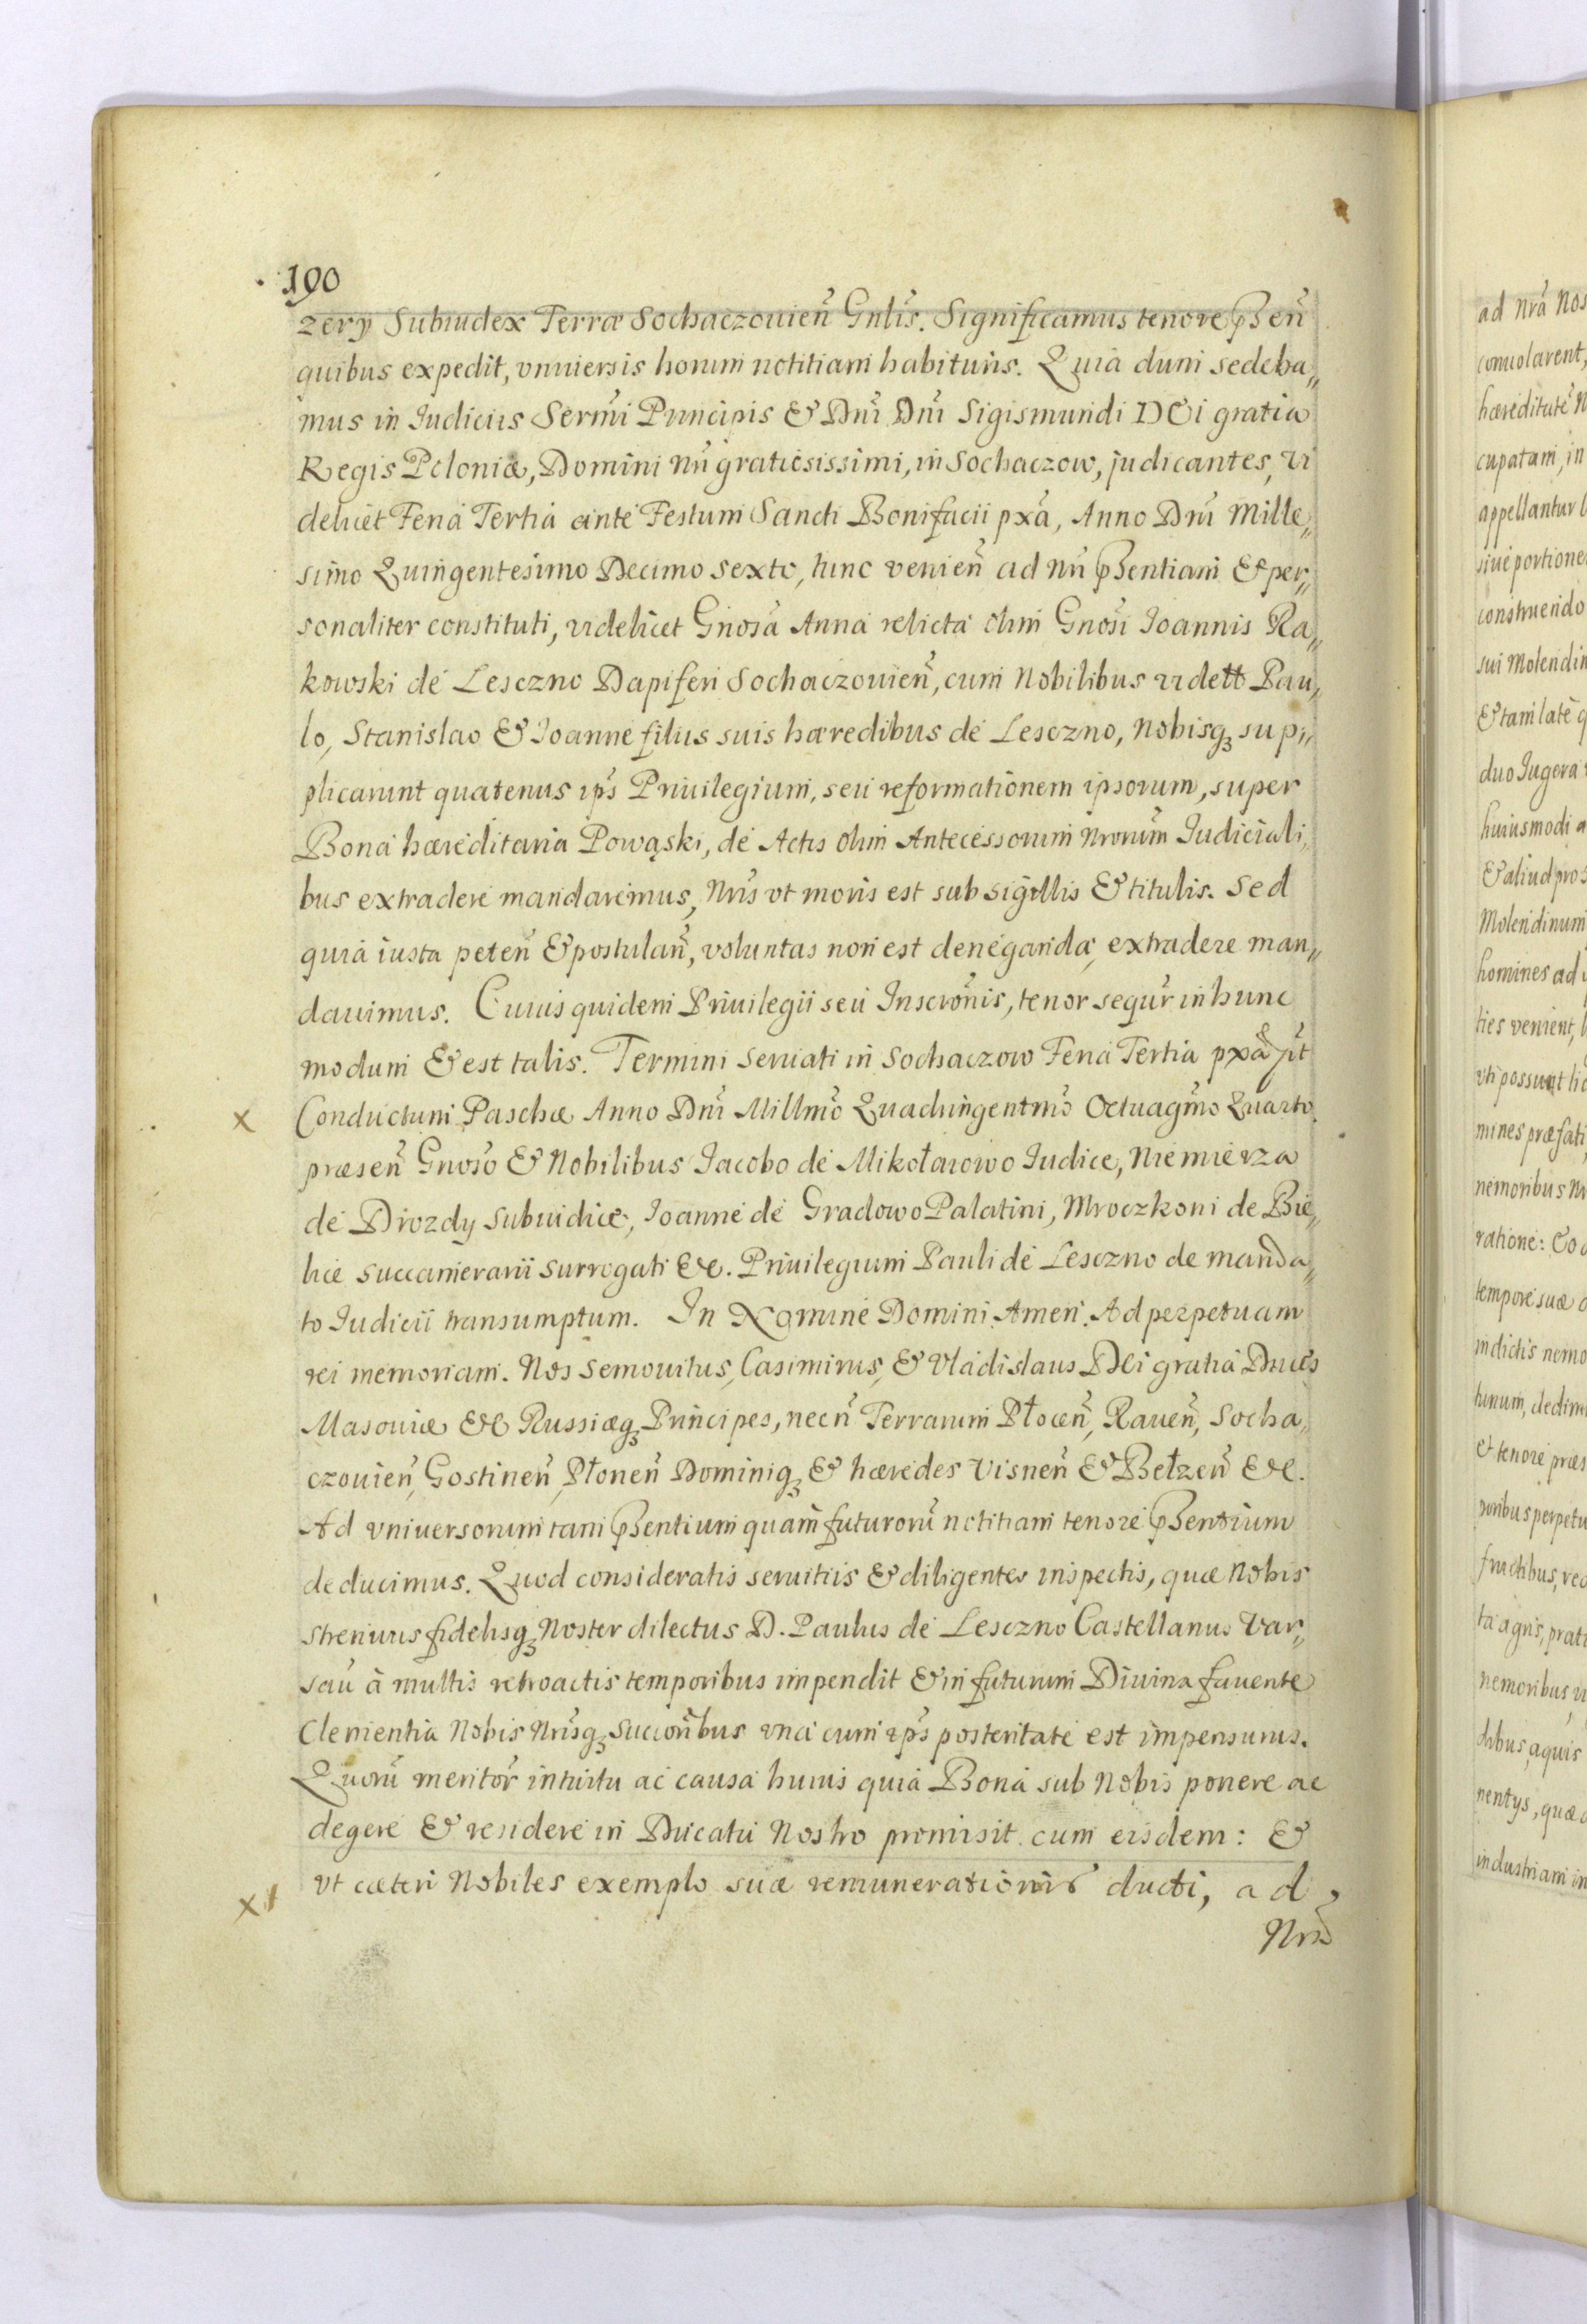 190
zery Subiudex Terræ Sochaczouien̄ Gnlis̄. Significamus tenore pn̄sen̄
quibus expedit, vniuersis horum notitiam habituris. Quia dum sedeba„
mus in Iudiciis Serm̄i Principis & Dn̄i Dn̄i Sigismundi DEi gratia
Regis Poloniæ, Domini nr̄i gratiosissimi, in Sochaczow, judicantes, vi
delicet Feria Tertia ante Festum Sancti Bonifacii px̄a, Anno Dn̄i Mille„
simo Quingentesimo Decimo sexto, tunc venien̄ ad nr̄i pn̄sentiam & per„
sonaliter constituti, videlicet Gnosā Anna relicta olim Gnosī Joannis Ra„
kowski de Lesczno Dapiferi Sochaczouien̄, cum Nobilibus vidett Pau„
lo, Stanislao & Joanne filiis suis hæredibus de Lesczno, Nobisq3 sup„
plicarunt quatenus ips̄ Priuilegium, seu reformationem ipsorum, super
Bona hæreditaria Powąski, de Actis olim Antecessorum Nrorum̄ Iudiciali„
bus extradere mandaremus, Nris̄ vt moris est sub sigillis & titulis. Sed
quia iusta peten̄ & postulan̄, voluntas non est deneganda, extradere man„
dauimus. Cuius quidem Priuilegii seu Inscrōnis, tenor sequr̄ in hunc
modum & est talis. Termini seruati in Sochaczow Feria Tertia pxā pt̄
Conductum Paschæ Anno Dn̄i Millmō Quadringentmō Octuagmō Quarto
præsen̄ Gnosō & Nobilibus Jacobo de Mikołaiowo Iudice, Niemierza
de Drozdy Subiudice, Joanne de Gradowo Palatini, Mroczkoni de Bie„
lice succamerarii surrogati &c. Priuilegium Pauli de Lesczno de manda„
to Iudicii transumptum. In Nomine Domini Amen. Ad perpetuam
rei memoriam. Nos Semouitus, Casimirus, & Vladislaus DEi gratia Duces
Masouiæ &c Russiæq3 Principes, necn̄ Terrarum Płocen̄, Rauen̄, Socha„
czouien̄, Gostinen̄, Płonen̄ Dominiq3 & hæredes Visnen̄ & Bełzen̄ &c.
Ad vniuersorum tam pn̄sentium quam futurorū notitiam tenore pn̄sentium
deducimus. Quod consideratis seruitiis & diligenter inspectis, quæ Nobis
strenuus fidelisq3 Noster dilectus D. Paulus de Lesczno Castellanus Var„
sau̅ à multis retroactis temporibus impendit & in futurum Diuina fauente
Clementia Nobis Nris̄q3 Succorībus vna cum ips̄ posteritate est impensurus.
Quorū meritor̄ intuitu ac causa huius quia Bona sub Nobis ponere ac
degere & residere in Ducatu Nostro promisit cum eisdem: &
vt cæteri Nobiles exemplo suæ remunerationis ducti, ad
Nrā
X
X
ad nrā Nos
conuolarent,
hæreditatē N
cupatam, in
appellantur
siue portione
construendo
sui Molendin
& tam late q
duo Iugera
huiusmodi a
& aliud pros
Molendinum
homines ad
ties venient,
vti possunt lic
mines præfati
nemoribus
ratione: Eo
tempore suæ
in dictis nemo
hinum, dedim
et tenore præs
noribus perpetu
fructibus, red
ta agris, prati
nemoribus
dibus, aquis
nentys, quæ
industriam in